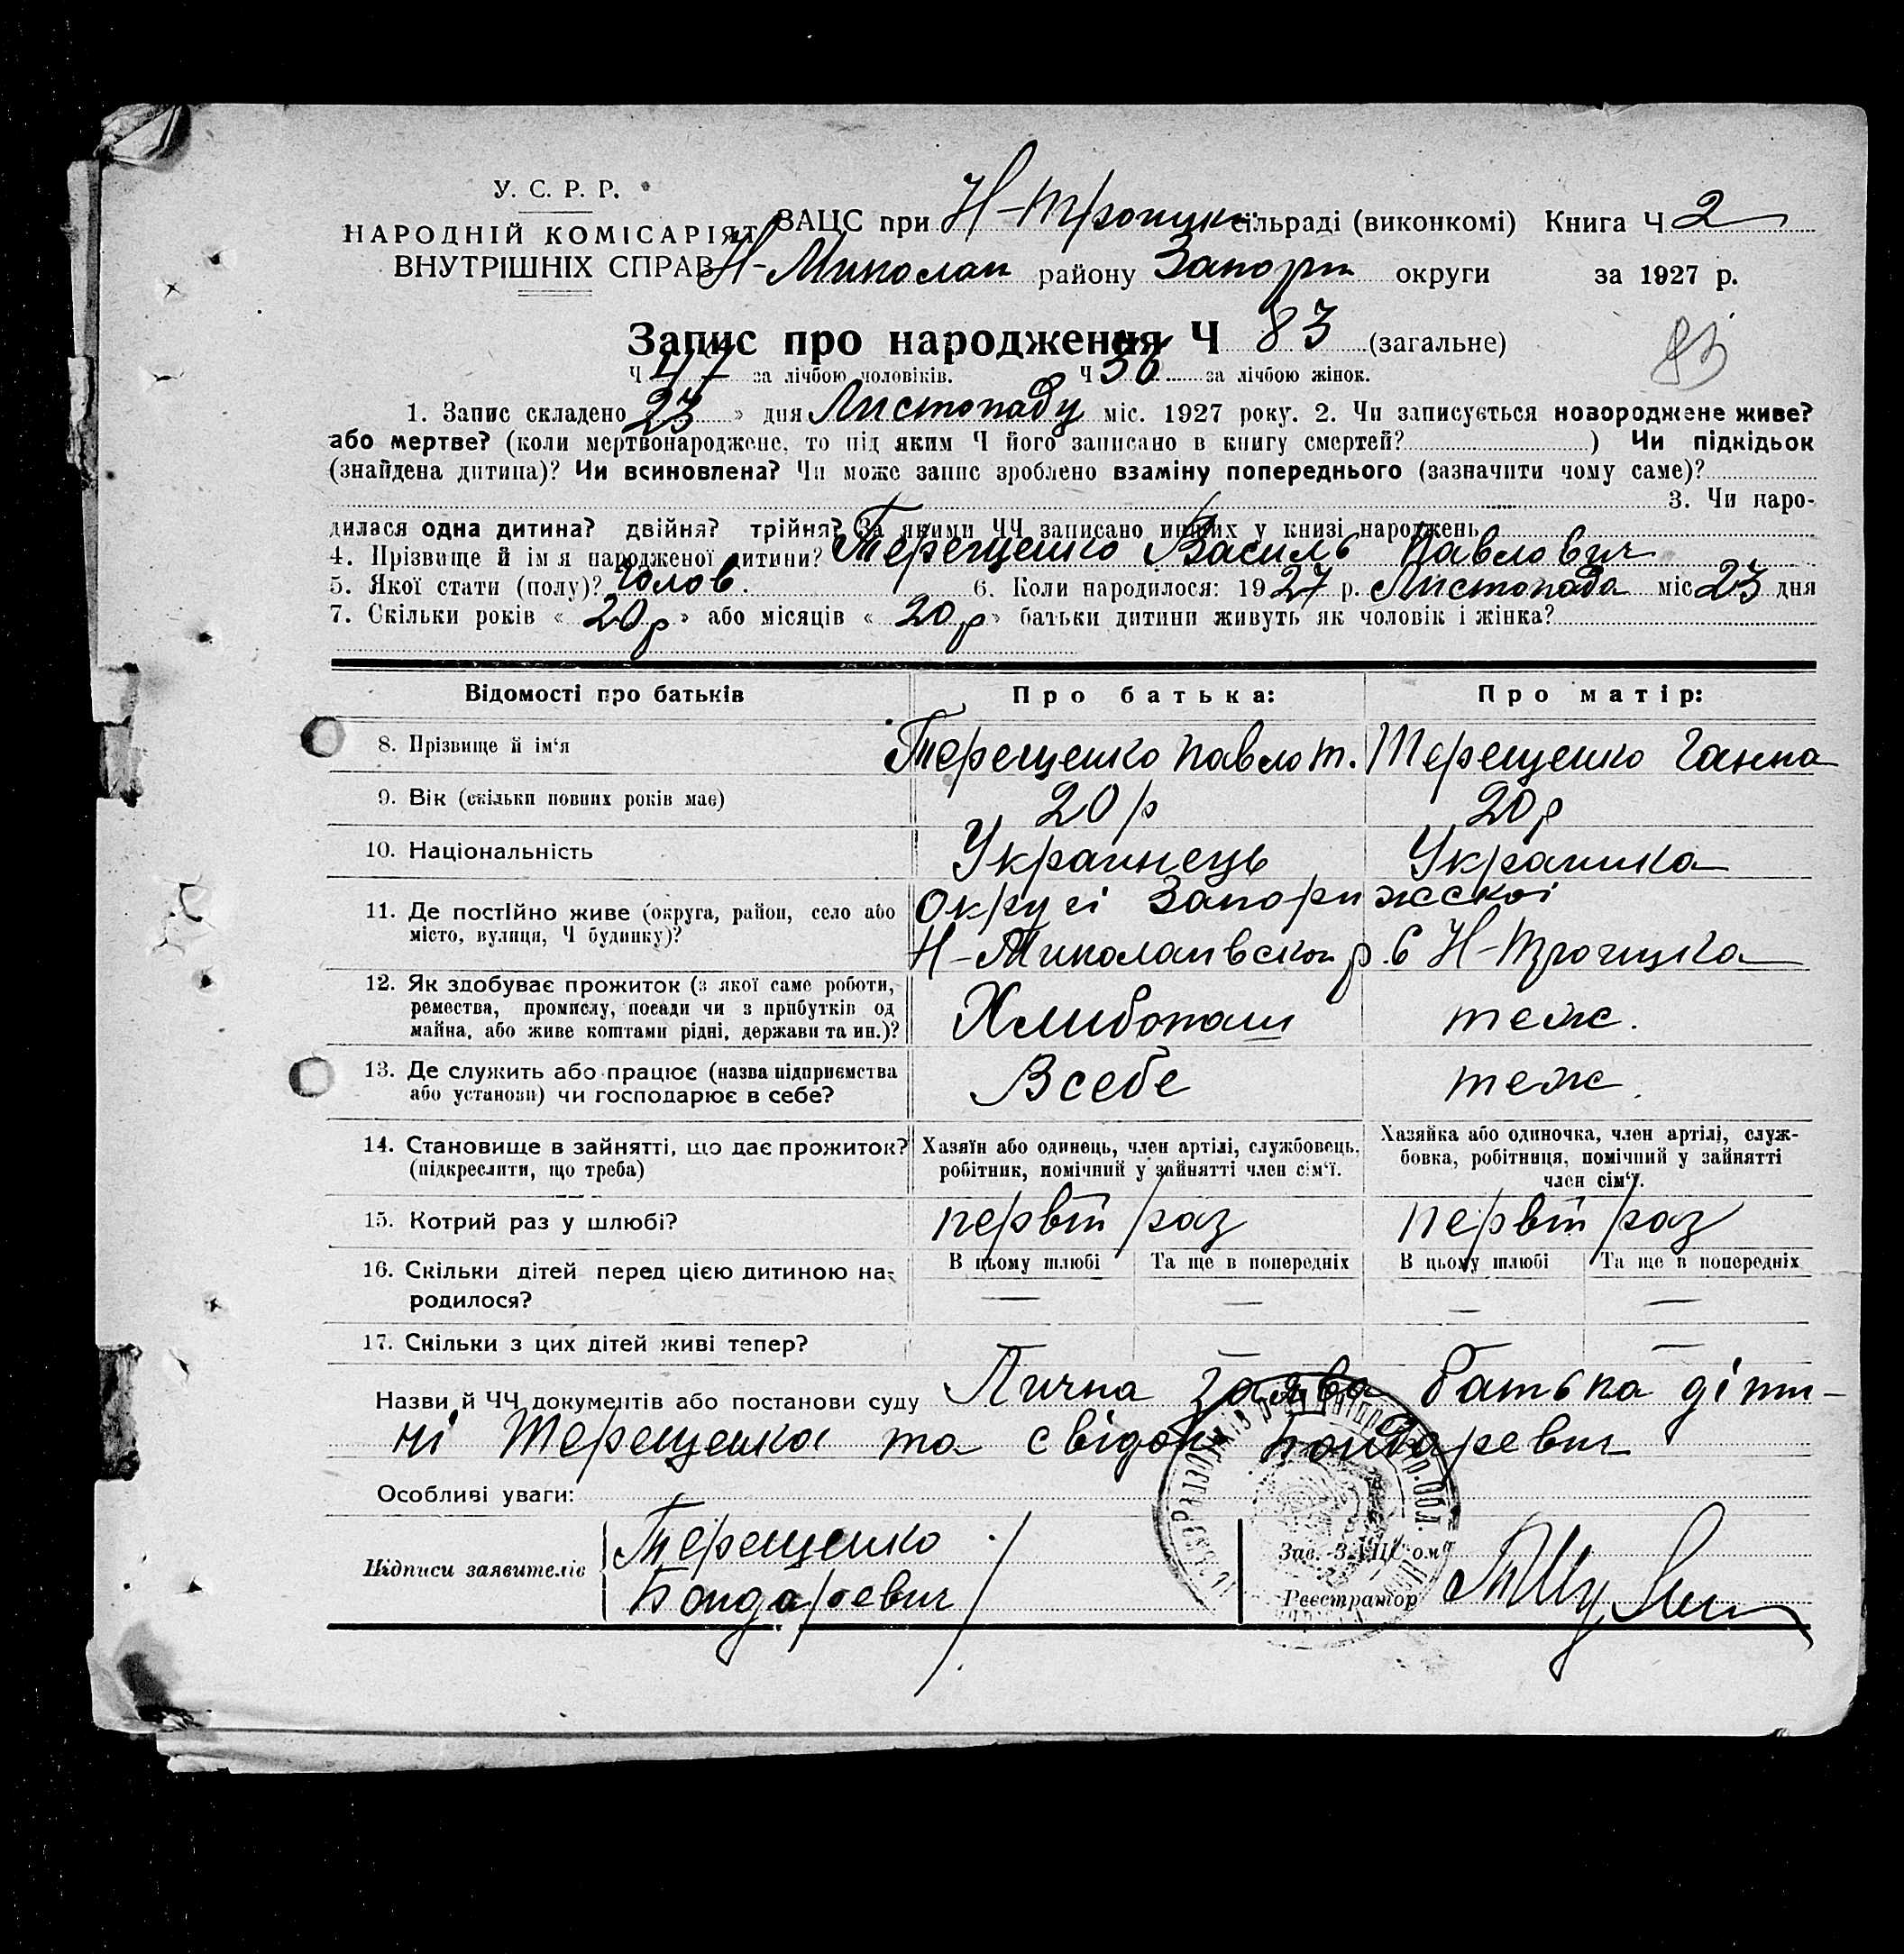 У. С. Р. Р.
НАРОДНІЙ КОМІСАРІЯТ
ВНУТРІШНІХ СПРАВ
ЗАЦС при Н-Троицк. сільраді (виконкомі) Книга Ч 2
Н-Миколаи району Запори округи за 1927 р.
Запис про народження Ч 83 (загальне)
83
Ч 47 за лічбою чоловіків. Ч 36 за лічбою жінок.
1. Запис складено 23 » дня Листопаду міс. 1927 року. 2. Чи записується новороджене живе?
або мертве? (коли мертвонароджене, то під яким Ч його записано в книгу смертей? ) Чи підкідьок
(знайдена дитина)? Чи всиновлена? Чи може запис зроблено взаміну попереднього (зазначити чому саме)?
3. Чи наро-
дилася одна дитина? двійня? трійня? За якими ЧЧ записано инших у книзі народжень
4. Прізвище й ім я народженої дитини? Терещенко Василь Павлович
5. Якої стати (полу)? Чолов. 6. Коли народилося: 1927 р. Листопада міс 23 дня
7. Скільки років « 20 р » або місяців « 20 р » батьки дитини живуть як чоловік і жінка?
Відомості про батьків Про батька: Про матір:
8. Прізвище й ім‘я Терещенко Павло Т. Терещенко Ганна
9. Вік (скільки повних років має) 20 р 20 р
10. Національність Украинець Украинка
11. Де постійно живе (округа, район, село або Округі Запорижскоі
місто, вулиця, Ч будинку)? Н-Миколаивскои р. с Н-Троицка
12. Як здобуває прожиток (з якої саме роботи,
ремества, промислу, посади чи з прибутків од Хлибопаш теж.
майна, або живе коштами рідні, держави та ин.)?
13. Де служить або працює (назва підприємства В себе теж.
або установи) чи господарює в себе?
14. Становище в зайнятті, що дає прожиток? Хазяїн або одинець, член артілі, службовець, Хазяйка або одиночка, член артілі, служ-
(підкреслити, що треба) робітник, помічний у зайнятті член сім‘ї. бовка, робітниця, помічний у зайнятті
член сім‘ї.
15. Котрий раз у шлюбі? первій раз первій раз
16. Скільки дітей перед цією дитиною на- В цьому шлюбі Та ще в попередніх В цьому шлюбі Та ще в попередніх
родилося? — — — —
17. Скільки з цих дітей живі тепер? —
Назви й ЧЧ документів або постанови суду Лична заява батька діти-
ні Терещенка та свідок Бондаревич
Особливі уваги:
Підписи заявителів Терещенко
Бондаревич
Зав. ЗАЦС‘ом
Реєстратор